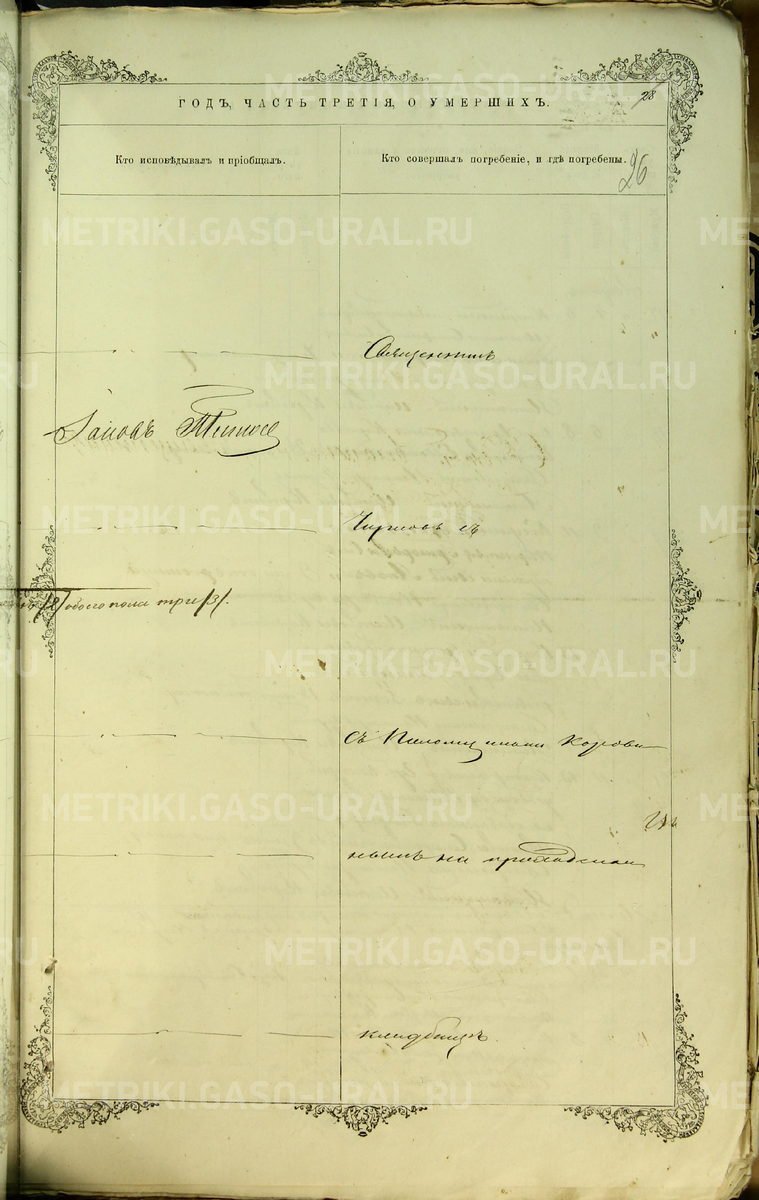 28
ГОДЪ, ЧАСТЬ ТРЕТІЯ, О УМЕРШИХЪ.
Кто исповѣдывалъ и пріобщалъ.
Кто совершалъ погребеніе, и гдѣ погребены.
26
Священникъ
Чирковъ съ
обоего пола три /3/.
съ Псаломщикомъ Корови
нымъ на приходскомъ
кладбищѣ.
METRIKI.GASO-URAL.RU